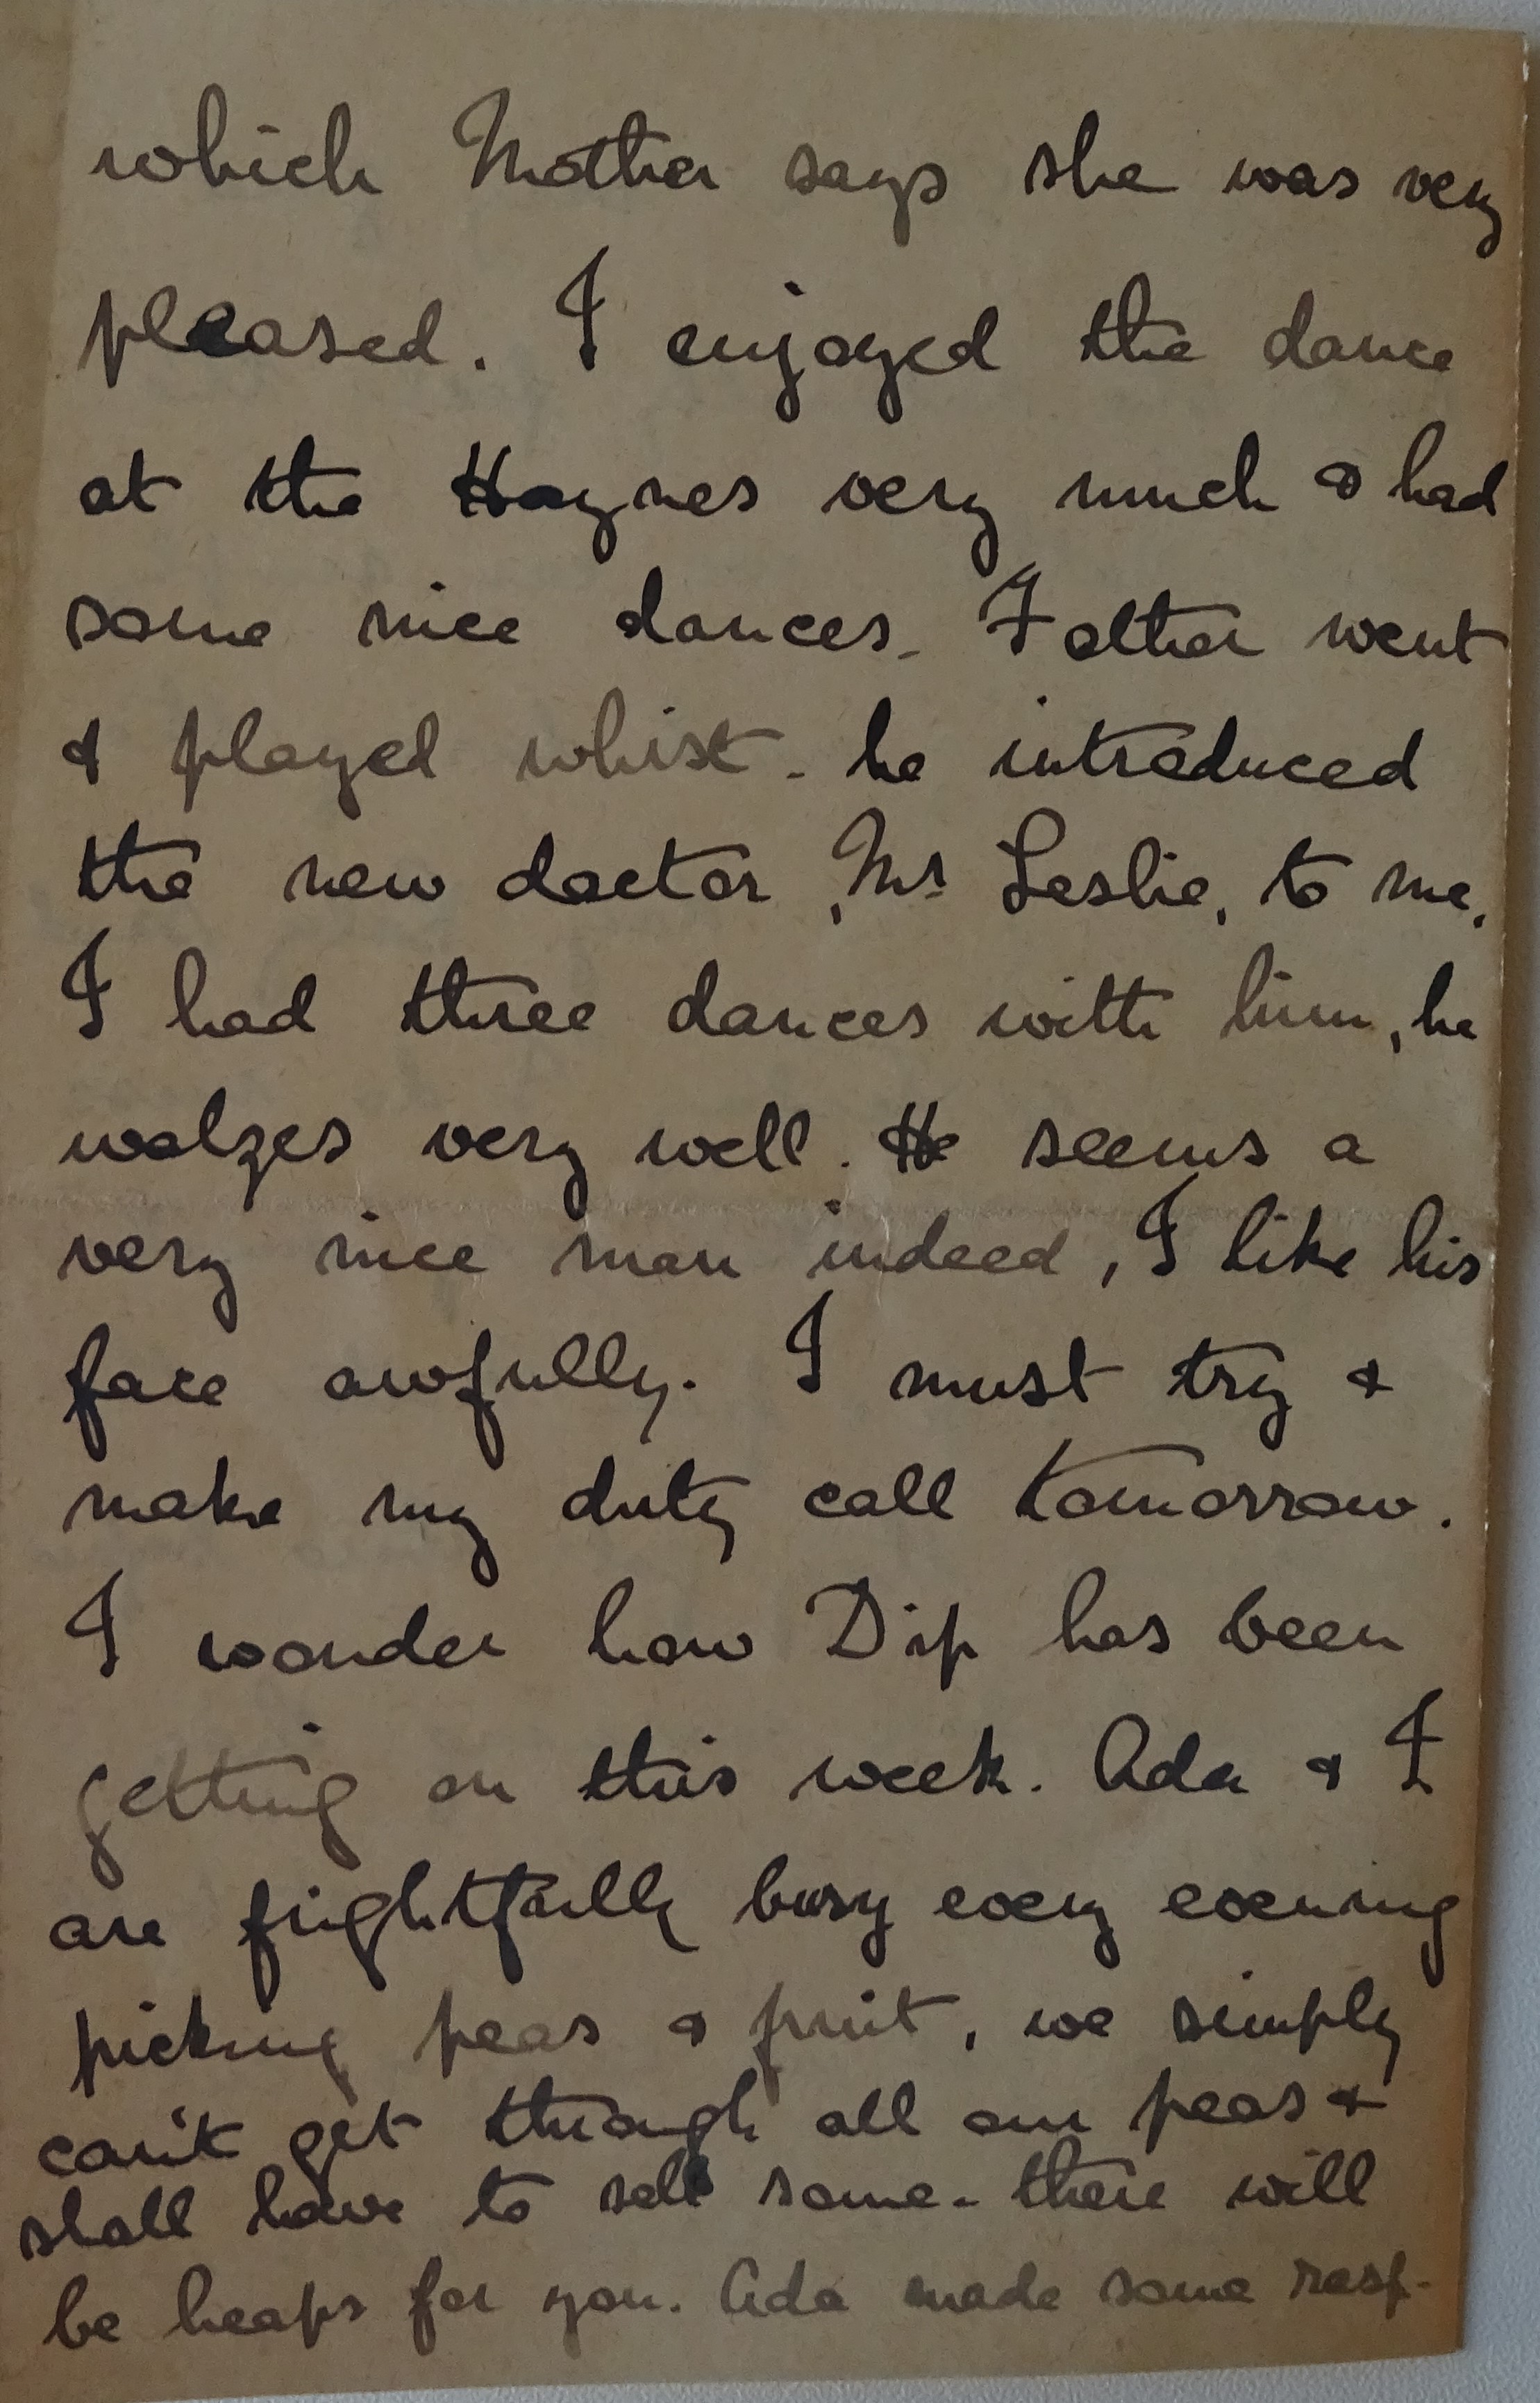 which Mother says she was very
pleased. I enjoyed the dance
at the Haynes very much & had
some nice dances. Father went
& played whist - he introduced
the new doctor, Mr Leslie, to me.
I had three dances with him, he
walzes very well. He seems a
very nice man indeed, I like his
face awfully. I must try &
make my duty call tomorrow.
I wonder how Dip has been
getting on this week. Ada & I
are frightfully busy every evening
picking peas & fruit, we simply
can't get through all our peas &
shall have to sell some - there will
be heaps for you. Ada made some rasp-